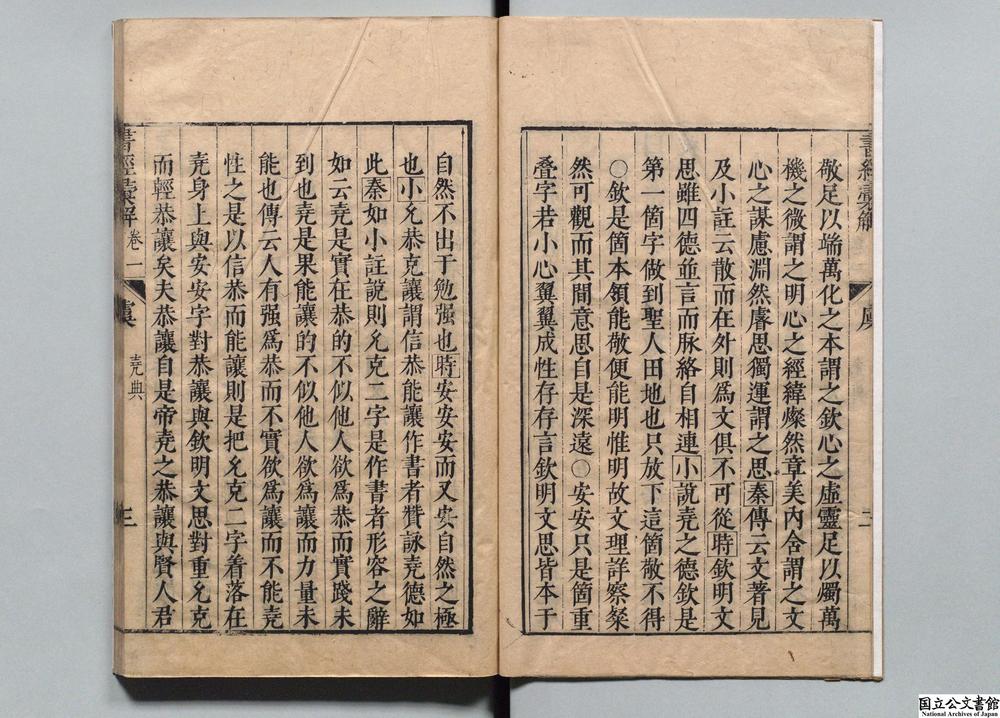 敬足以端萬化之本謂之欽心之虛靈足以燭萬
機之微謂之明心之經緯燦然章美內含謂之文
心之謀慮淵然睿思獨運謂之思秦傳云文著見
及小註云散而在外則爲文俱不可從時欽明文
思雖四德並言而脉絡自相連小說堯之德欽是
第一箇字做到聖人田地也只放下這箇敬不得
○欽是箇本領能敬便能明惟明故文理詳察粲
然可觀而其間意思自是深遠○安安只是箇重
叠字若小心翼翼成性存存言欽明文思皆本于
二
自然不出于勉强也時安安安而又安自然之極
也小允恭克讓謂信恭能讓作書者贊詠堯德如
此秦如小註說則允克二字是作書者形容之辭
如云堯是實在恭的不似他人欲爲恭而實踐未
到也堯是果能讓的不似他人欲爲讓而力量未
能也傳云人有强爲恭而不實欲爲讓而不能堯
性之是以信恭而能讓則是把允克二字着落在
堯身上與安安字對恭讓與欽明文思對重允克
而輕恭讓矣夫恭讓自是帝堯之恭讓與賢人君
書經 解 卷一 虞 堯典 三
国立公文書館
National Archives of Japan